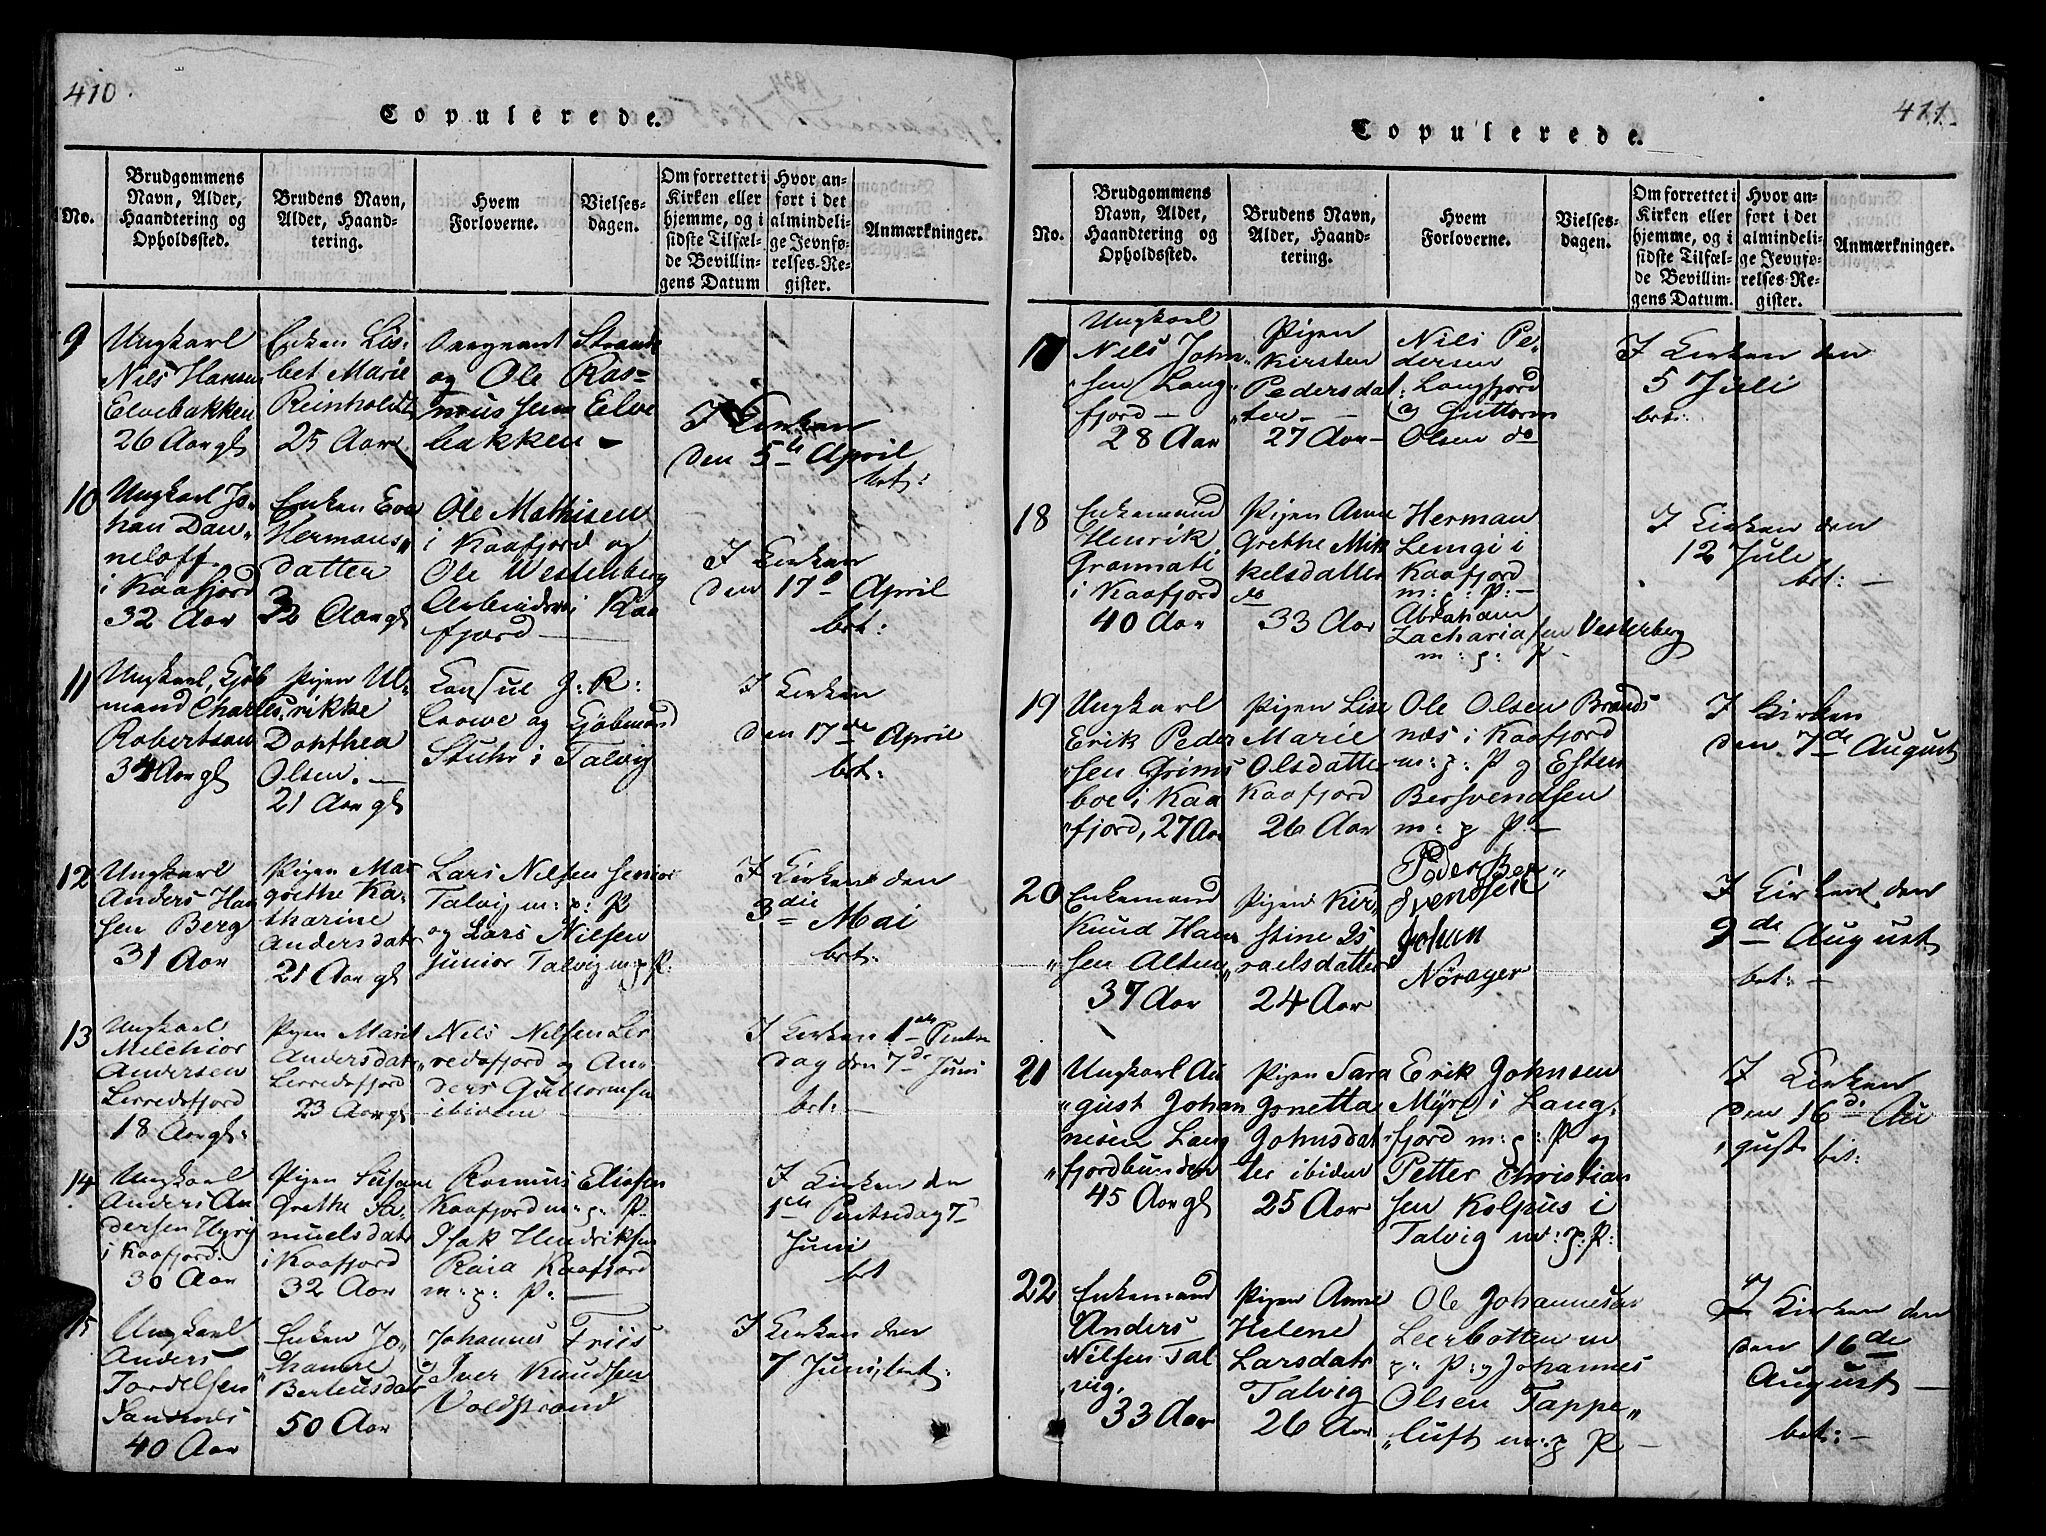 410.
Copulerede.
No.
Brudgommens
Navn, Alder,
Haandtering og
Opholdssted.
Brudens Navn,
Alder, Haand-
tering.
Hvem
Forloverne.
Vielses-
dagen.
Om forrettet i
Kirken eller
hjemme, og i
sidste Tilfæl-
de Bevillin-
gens Datum
Hvor an-
ført i det
almindeli-
ge Jevnfø-
relses-Re-
gister.
Anmærkninger.
9
Ungkarl
Nils Hansen
Elvebakken
26 Aar gl
Enken Lis-
bet Marie
Reinholdt
25 Aar
Sergeant Strand
og Ole Ras-
mussen Elve
bakken
I Kirken
den 5te April
bet:
10
Ungkarl Jo-
han Dan-
neloff
i Kaafjord
32 Aar
Enken Eva
Hermans-
datter
32 Aar gl
Ole Mathisen
i Kaafjord og
Ole Westenberg
Arbeider i Kaa
fjord
I Kirken
den 17de April
bet:
11
Ungkarl, Kjøb
mand Charles
Robertson
34 Aar gl
Pigen Ul-
rikke
Dorthea
Olsen.
21 Aar gl
Consul J: R:
Crowe og Kjøbmand
Stuhr i Talvig
I Kirken
den 17de April
bet:
12
Ungkarl
Anders Han
sen Berg
31 Aar
Pigen Mar
grethe Ka-
tharine
Andersdatr
21 Aar gl
Lars Nilsen Senior
Talvig m: p: P
og Lars Nilsen
Junior Talvig m p P:
I Kirken den
3die Mai
bet:
13
Ungkarl
Melchior
Andersen
Lerredsfjord
18 Aar gl:
Pigen Maret
Andersdatr
Lerredsfjord
23 Aar gl
Nils Nilsen Ler
redsfjord og An
ders Guttormsen
ibidem
I Kirken 1ste Pintse
dag den 7de Juni
bet:
14
Ungkarl
Anders An
dersen Hyry
i Kaafjord.
30 Aar
Pigen Susane
Grethe Sa-
muelsdatr
i Kaafjord
32 Aar
Rasmus Eliasen
Kaafjord m: p: P:
Isak Hendriksen
Raia Kaafjord
m: p: P:
I Kirken den
1ste Pintsedag 7
Juni
bet
15
Ungkarl
Anders
Tordelsen
Sannes
40 Aar
Enken Jo-
hanne
Berteusdatr
50 Aar
Johannes Friis
Iver Knudsen
Voldstrand
I Kirken den
7 Juni bet:
411.
Copulerede.
No.
Brudgommens
Navn, Alder,
Haandtering og
Opholdssted.
Brudens Navn,
Alder, Haand-
tering.
Hvem
Forloverne.
Vielses-
dagen.
Om forrettet i
Kirken eller
hjemme, og i
sidste Tilfæl-
de Bevillin-
gens Datum.
Hvor an-
ført i det
almindeli-
ge Jevnfø-
relses-Re-
gister.
Anmærkninger.
17
Ungkarl
Nils John
sen Lang
fjord
28 Aar
Pigen
Kirsten
Pedersdat
ter
27 Aar
Nils Pe-
dersen
Langfjord
og Guttorm
Olsen do
I Kirken den
5 Juli
bet:
18
Enkemand
Henrik
Grannati
i Kaafjord
40 Aar
Pigen Anne
Grethe Mik
kelsdatter
do
33 Aar
Herman
Lemgi i
Kaafjord
m: p: P:
Abraham
Zachariasen Vesterberg
m: p: P
I Kirken den
12 Jule
bet:
19
Ungkarl
Erik Peder
sen Grims
boe i Kaa
fjord, 27 Aar
Pigen Lise
Marie
Olsdatter
Kaafjord
26 Aar
Ole Olsen Brands
næs i Kaafjord
m: p: P og Esten
Bersvendsen
m: p P:
I Kirken
den 7de August
20
Enkemand
Knud Han
sen Alten
37 Aar
Pigen Kir
stine Is
raelsdatter
24 Aar
Peder Ber
svendsen
Johan
Norager
I Kirken den
9de August
bet:
21
Ungkarl Au
gust Johan
nesen Lang
fjordbunden
45 Aar gl
Pigen Sara
Jonetta
Johnsdat
ter ibiden
25 Aar
Erik Johnsen
Myre i Lang
fjord m: p: P og
Petter Christian
sen Kolpus i
Talvig m: p: P:
I Kirken
den 16de Au
gust bet:
22
Enkemand
Anders
Nilsen Tal
vig.
33 Aar
Pigen Anne
Helene
Larsdatr
Talvig
26 Aar
Ole Johannesen
Leerbotten m
p: P: og Johannes
Olsen Tappe
luft m: p P
I Kirken den
den 16de
August
bet: